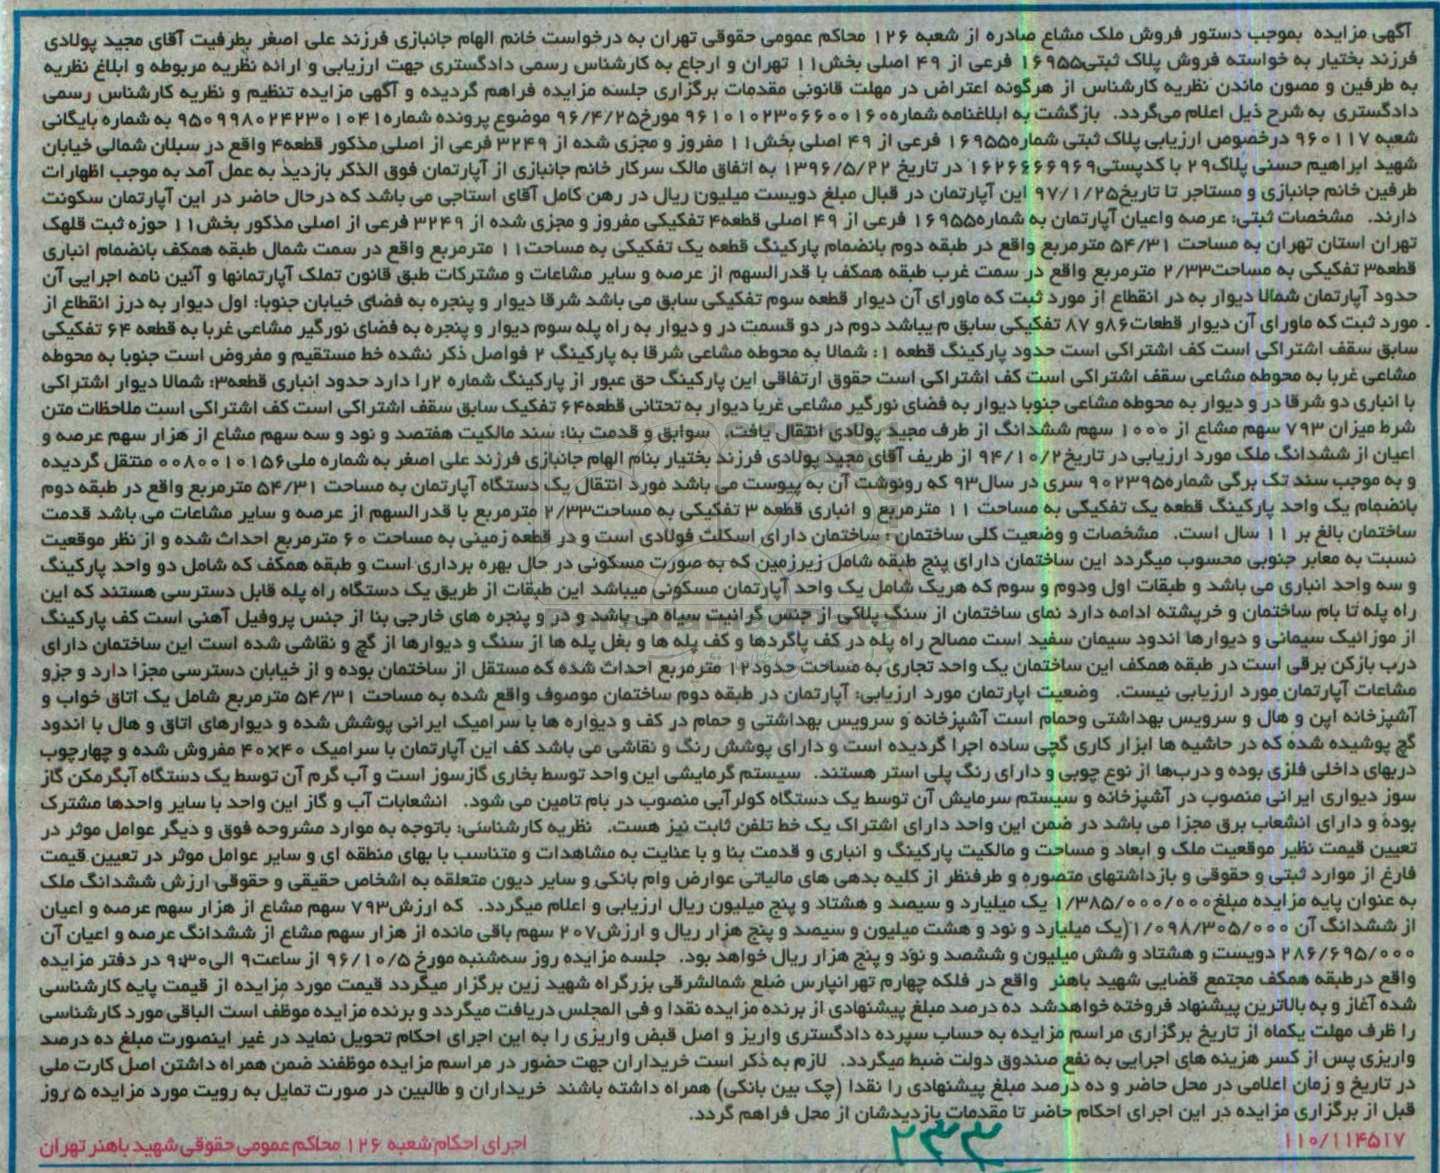 آگهی مزایده بموجب دستور فروش ملک مشاع صادره از شعبه ۱۲۶ محاکم عمومی حقوقی تهران به درخواست خانم الهام جانبازی فرزند علی اصغر بطرفیت آقای مجید پولادی
فرزند بختیار به خواسته فروش پلاک ثبتی۱۶۹۵۵ فرعی از ۴۹ اصلی بخش۱۱ تهران و ارجاع به کارشناس رسمی دادگستری جهت ارزیابی و ارائه نظریه مربوطه و ابلاغ نظریه
به طرفین و مصون ماندن نظریه کارشناس از هرگونه اعتراض در مهلت قانونی مقدمات برگزاری جلسه مزایده فراهم گردیده و آگهی مزایده تنظیم و نظریه کارشناس رسمی
دادگستری به شرح ذیل اعلام می‌گردد. بازگشت به ابلاغنامه شماره۹۶۱۰۱۰۲۳۰۶۶۰۰۱۶۰ مورخ۹۶/۴/۲۵ موضوع پرونده شماره۹۵۰۹۹۸۰۲۴۲۳۰۱۰۴۱ به شماره بایگانی
شعبه ۹۶۰۱۱۷ درخصوص ارزیابی پلاک ثبتی شماره۱۶۹۵۵ فرعی از ۴۹ اصلی بخش۱۱ مفروز و مجزی شده از ۳۲۴۹ فرعی از اصلی مذکور قطعه۴ واقع در سبلان شمالی خیابان
شهید ابراهیم حسنی پلاک۲۹ با کدپستی۱۶۲۶۶۶۶۹۶۹ در تاریخ ۱۳۹۶/۵/۲۲ به اتفاق مالک سرکار خانم جانبازی از آپارتمان فوق الذکر بازدید به عمل آمد به موجب اظهارات
طرفین خانم جانبازی و مستاجر تا تاریخ۹۷/۱/۲۵ این آپارتمان در قبال مبلغ دویست میلیون ریال در رهن کامل آقای استاجی می باشد که درحال حاضر در این آپارتمان سکونت
دارند. مشخصات ثبتی: عرصه واعیان آپارتمان به شماره۱۶۹۵۵ فرعی از ۴۹ اصلی قطعه۴ تفکیکی مفروز و مجزی شده از ۳۲۴۹ فرعی از اصلی مذکور بخش۱۱ حوزه ثبت قلهک
تهران استان تهران به مساحت ۵۴/۳۱ مترمربع واقع در طبقه دوم بانضمام پارکینگ قطعه یک تفکیکی به مساحت۱۱ مترمربع واقع در سمت شمال طبقه همکف بانضمام انباری
قطعه۳ تفکیکی به مساحت۲/۳۳ مترمربع واقع در سمت غرب طبقه همکف با قدرالسهم از عرصه و سایر مشاعات و مشترکات طبق قانون تملک آپارتمانها و آئین نامه اجرایی آن
حدود آپارتمان شمالا دیوار به در انقطاع از مورد ثبت که ماورای آن دیوار قطعه سوم تفکیکی سابق می باشد شرقا دیوار و پنجره به فضای خیابان جنوبا: اول دیوار به درز انقطاع از
مورد ثبت که ماورای آن دیوار قطعات۸۶و ۸۷ تفکیکی سابق م یباشد دوم در دو قسمت در و دیوار به راه پله سوم دیوار و پنجره به فضای نورگیر مشاعی غربا به قطعه ۶۴ تفکیکی
سابق سقف اشتراکی است کف اشتراکی است حدود پارکینگ قطعه ۱: شمالا به محوطه مشاعی شرقا به پارکینگ ۲ فواصل ذکر نشده خط مستقیم و مفروض است جنوبا به محوطه
مشاعی غربا به محوطه مشاعی سقف اشتراکی است کف اشتراکی است حقوق ارتفاقی این پارکینگ حق عبور از پارکینگ شماره ۲را دارد حدود انباری قطعه۳: شمالا دیوار اشتراکی
با انباری دو شرقا در و دیوار به محوطه مشاعی جنوبا دیوار به فضای نورگیر مشاعی غربا دیوار به تحتانی قطعه۶۴ تفکیک سابق سقف اشتراکی است کف اشتراکی است ملاحظات متن
شرط میزان ۷۹۳ سهم مشاع از ۱۰۰۰ سهم ششدانگ از طرف مجید پولادی انتقال یافت. سوابق و قدمت بنا: سند مالکیت هفتصد و نود و سه سهم مشاع از هزار سهم عرصه و
اعیان از ششدانگ ملک مورد ارزیابی در تاریخ۹۴/۱۰/۲ از طریف آقای مجید پولادی فرزند بختیار بنام الهام جانبازی فرزند علی اصغر به شماره ملی۰۰۸۰۰۱۰۱۵۶ منتقل گردیده
و به موجب سند تک برگی شماره۹۰۲۳۹۵ سری در سال۹۳ که رونوشت آن به پیوست می باشد مورد انتقال یک دستگاه آپارتمان به مساحت ۵۴/۳۱ مترمربع واقع در طبقه دوم
بانضمام یک واحد پارکینگ قطعه یک تفکیکی به مساحت ۱۱ مترمربع و انباری قطعه ۳ تفکیکی به مساحت۲/۳۳ مترمربع با قدرالسهم از عرصه و سایر مشاعات می باشد قدمت
ساختمان بالغ بر ۱۱ سال است. مشخصات و وضعیت کلی ساختمان : ساختمان دارای اسکلت فولادی است و در قطعه زمینی به مساحت ۶۰ مترمربع احداث شده و از نظر موقعیت
نسبت به معابر جنوبی محسوب میگردد این ساختمان دارای پنج طبقه شامل زیرزمین که به صورت مسکونی در حال بهره برداری است و طبقه همکف که شامل دو واحد پارکینگ
و سه واحد انباری می باشد و طبقات اول ودوم و سوم که هریک شامل یک واحد آپارتمان مسکونی میباشد این طبقات از طریق یک دستگاه راه پله قابل دسترسی هستند که این
راه پله تا بام ساختمان و خرپشته ادامه دارد نمای ساختمان از سنگ پلاکی از جنس گرانیت سیاه می باشد و در و پنجره های خارجی بنا از جنس پروفیل آهنی است کف پارکینگ
از موزائیک سیمانی و دیوارها اندود سیمان سفید است مصالح راه پله در کف پاگردها و کف پله ها و بغل پله ها از سنگ و دیوارها از گچ و نقاشی شده است این ساختمان دارای
درب بازکن برقی است در طبقه همکف این ساختمان یک واحد تجاری به مساحت حدود۱۲ مترمربع احداث شده که مستقل از ساختمان بوده و از خیابان دسترسی مجزا دارد و جزو
مشاعات آپارتمان مورد ارزیابی نیست. وضعیت اپارتمان مورد ارزیابی: آپارتمان در طبقه دوم ساختمان موصوف واقع شده به مساحت ۵۴/۳۱ مترمربع شامل یک اتاق خواب و
آشپزخانه اپن و هال و سرویس بهداشتی وحمام است آشپزخانه و سرویس بهداشتی و حمام در کف و دیواره ها با سرامیک ایرانی پوشش شده و دیوارهای اتاق و هال با اندود
گچ پوشیده شده که در حاشیه ها ابزار کاری گچی ساده اجرا گردیده است و دارای پوشش رنگ و نقاشی می باشد کف این آپارتمان با سرامیک ۴۰×۴۰ مفروش شده و چهارچوب
دربهای داخلی فلزی بوده و درب‌ها از نوع چوبی و دارای رنگ پلی استر هستند. سیستم گرمایشی این واحد توسط بخاری گازسوز است و آب گرم آن توسط یک دستگاه آبگرمکن گاز
سوز دیواری ایرانی منصوب در آشپزخانه و سیستم سرمایش آن توسط یک دستگاه کولرآبی منصوب در بام تامین می شود. انشعابات آب و گاز این واحد با سایر واحدها مشترک
بوده و دارای انشعاب برق مجزا می باشد در ضمن این واحد دارای اشتراک یک خط تلفن ثابت نیز هست. نظریه کارشناسی: باتوجه به موارد مشروحه فوق و دیگر عوامل موثر در
تعیین قیمت نظیر موقعیت ملک و ابعاد و مساحت و مالکیت پارکینگ و انباری و قدمت بنا و با عنایت به مشاهدات و متناسب با بهای منطقه ای و سایر عوامل موثر در تعیین قیمت
فارغ از موارد ثبتی و حقوقی و بازداشتهای متصوره و طرفنظر از کلیه بدهی های مالیاتی عوارض وام بانکی و سایر دیون متعلقه به اشخاص حقیقی و حقوقی ارزش ششدانگ ملک
به عنوان پایه مزایده مبلغ۱/۳۸۵/۰۰۰/۰۰۰ یک میلیارد و سیصد و هشتاد و پنج میلیون ریال ارزیابی و اعلام میگردد. که ارزش۷۹۳ سهم مشاع از هزار سهم عرصه و اعیان
از ششدانگ آن ۱/۰۹۸/۳۰۵/۰۰۰(یک میلیارد و نود و هشت میلیون و سیصد و پنج هزار ریال و ارزش۲۰۷ سهم باقی مانده از هزار سهم مشاع از ششدانگ عرصه و اعیان آن
۲۸۶/۶۹۵/۰۰۰ دویست و هشتاد و شش میلیون و ششصد و نود و پنج هزار ریال خواهد بود. جلسه مزایده روز سه‌شنبه مورخ ۹۶/۱۰/۵ از ساعت۹ الی۹:۳۰ در دفتر مزایده
واقع درطبقه همکف مجتمع قضایی شهید باهنر واقع در فلکه چهارم تهرانپارس ضلع شمالشرقی بزرگراه شهید زین برگزار میگردد قیمت مورد مزایده از قیمت پایه کارشناسی
شده آغاز و به بالاترین پیشنهاد فروخته خواهدشد ده درصد مبلغ پیشنهادی از برنده مزایده نقدا و فی المجلس دریافت میگردد و برنده مزایده موظف است الباقی مورد کارشناسی
را ظرف مهلت یکماه از تاریخ برگزاری مراسم مزایده به حساب سپرده دادگستری واریز و اصل قبض واریزی را به این اجرای احکام تحویل نماید در غیر اینصورت مبلغ ده درصد
واریزی پس از کسر هزینه های اجرایی به نفع صندوق دولت ضبط میگردد. لازم به ذکر است خریداران جهت حضور در مراسم مزایده موظفند ضمن همراه داشتن اصل کارت ملی
در تاریخ و زمان اعلامی در محل حاضر و ده درصد مبلغ پیشنهادی را نقدا (چک بین بانکی) همراه داشته باشند خریداران و طالبین در صورت تمایل به رویت مورد مزایده ۵ روز
قبل از برگزاری مزایده در این اجرای احکام حاضر تا مقدمات بازدیدشان از محل فراهم گردد.
۱۱۰/۱۱۴۵۱۷ اجرای احکام شعبه ۱۲۶ محاکم عمومی حقوقی شهید باهنر تهران
۲۳۳